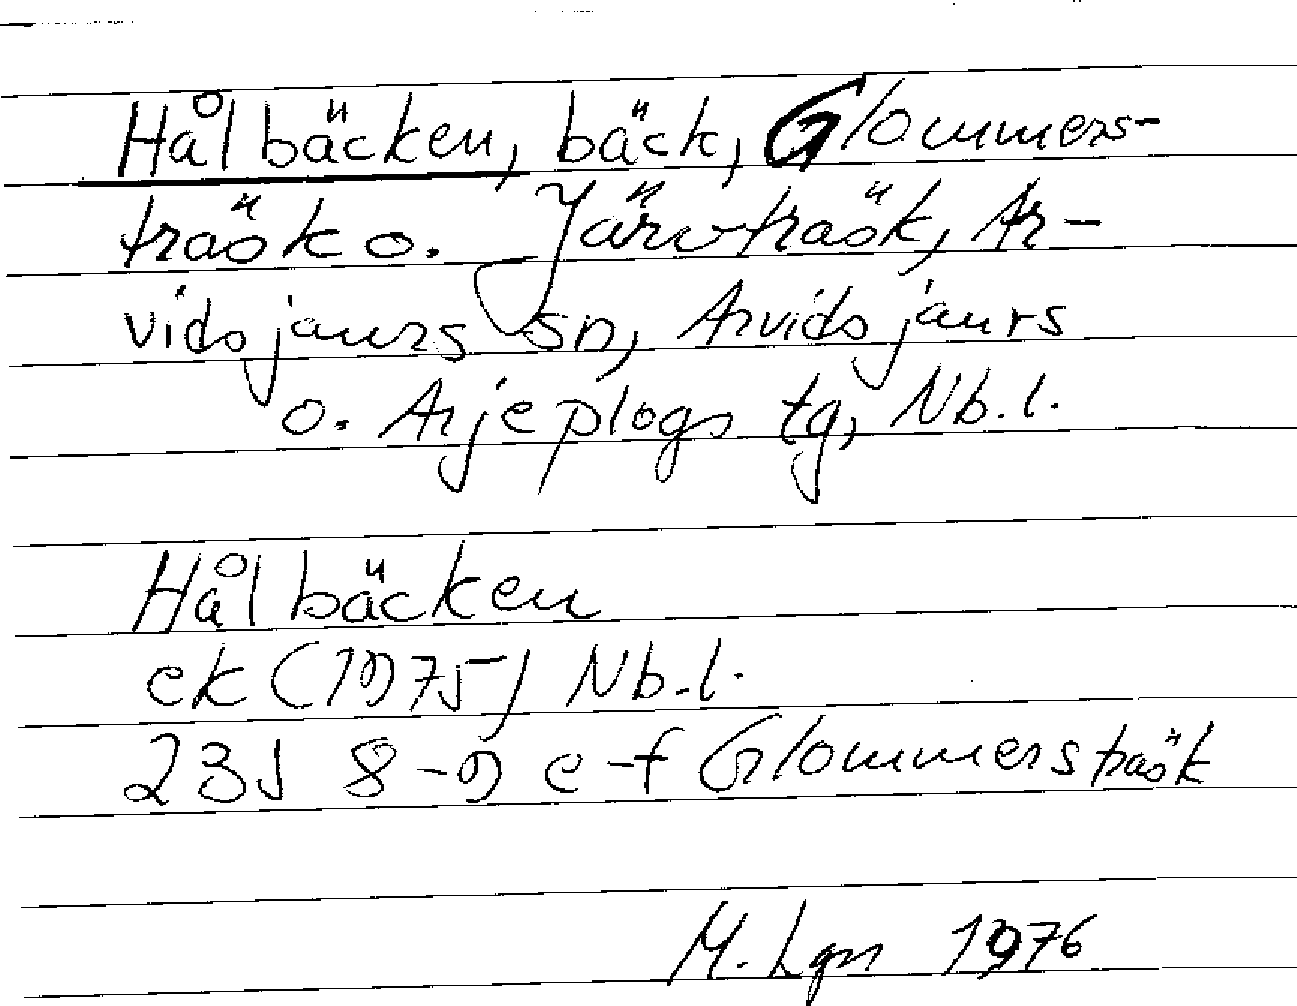 Hålbäcken, bäck, Glommers-
träsk o. Järvträsk, Ar-
vidsjaurs sn, Arvidsjaurs
o. Arjeplogs tg, Nb.l.
Hålbäcken
ek (1975) Nb.l.
23J 8-9 e-f Glommersträsk
M. Lgn 1976